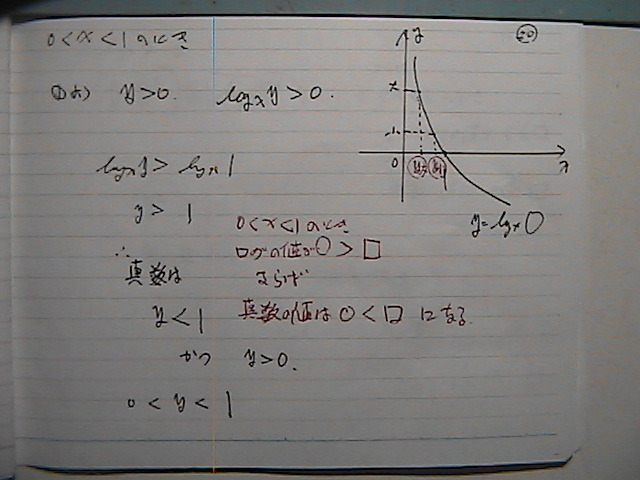 0<x<1のとき
①より y>0. logx y>0.
logx y> logx 1
y> 1
0<x<1のとき
∴ ログの値が○>□
真数は ならば
y<1 真数の値は○<□になる
かつ y>0.
0<y<1
y
0
x
y=logx○